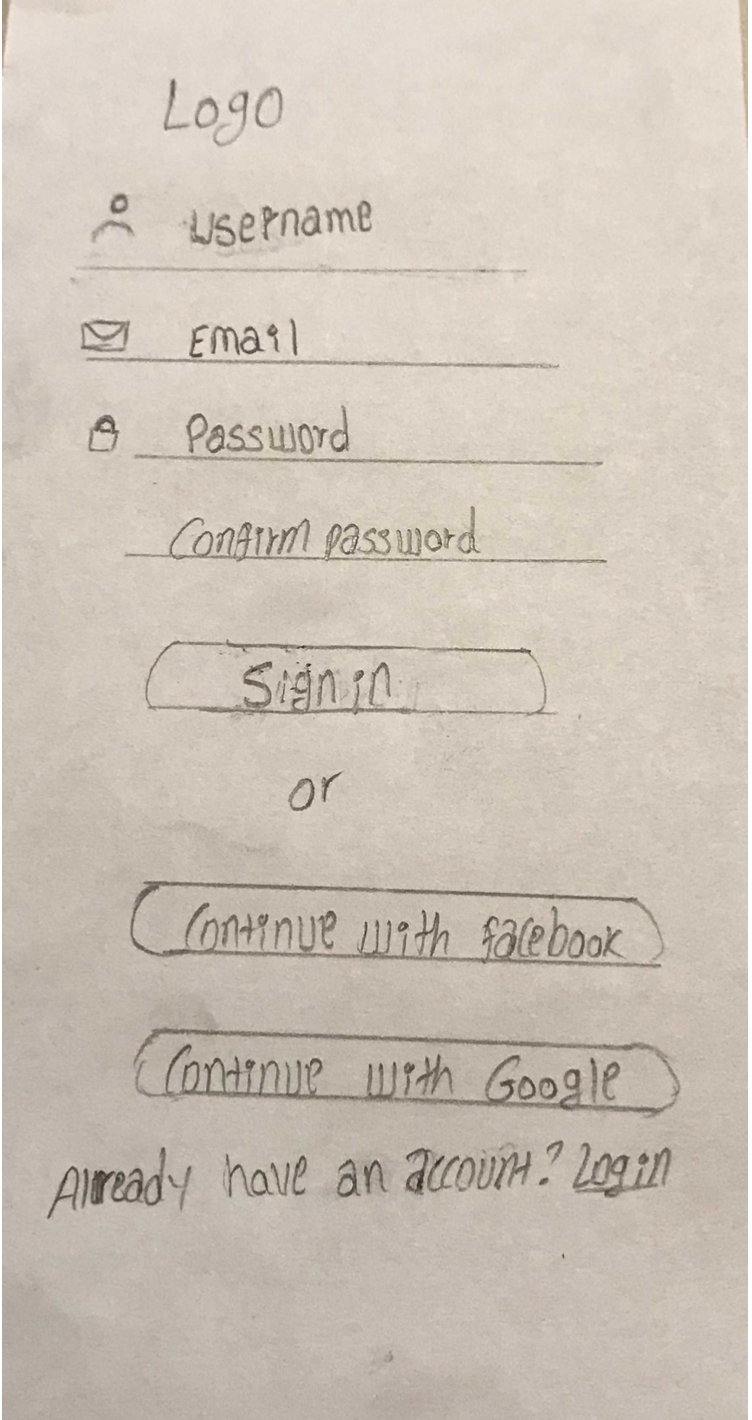 Logo
Username
Email
Password
Confirm password
Sign in
or
Continue with facebook
Continue with Google
Already have an account? Login